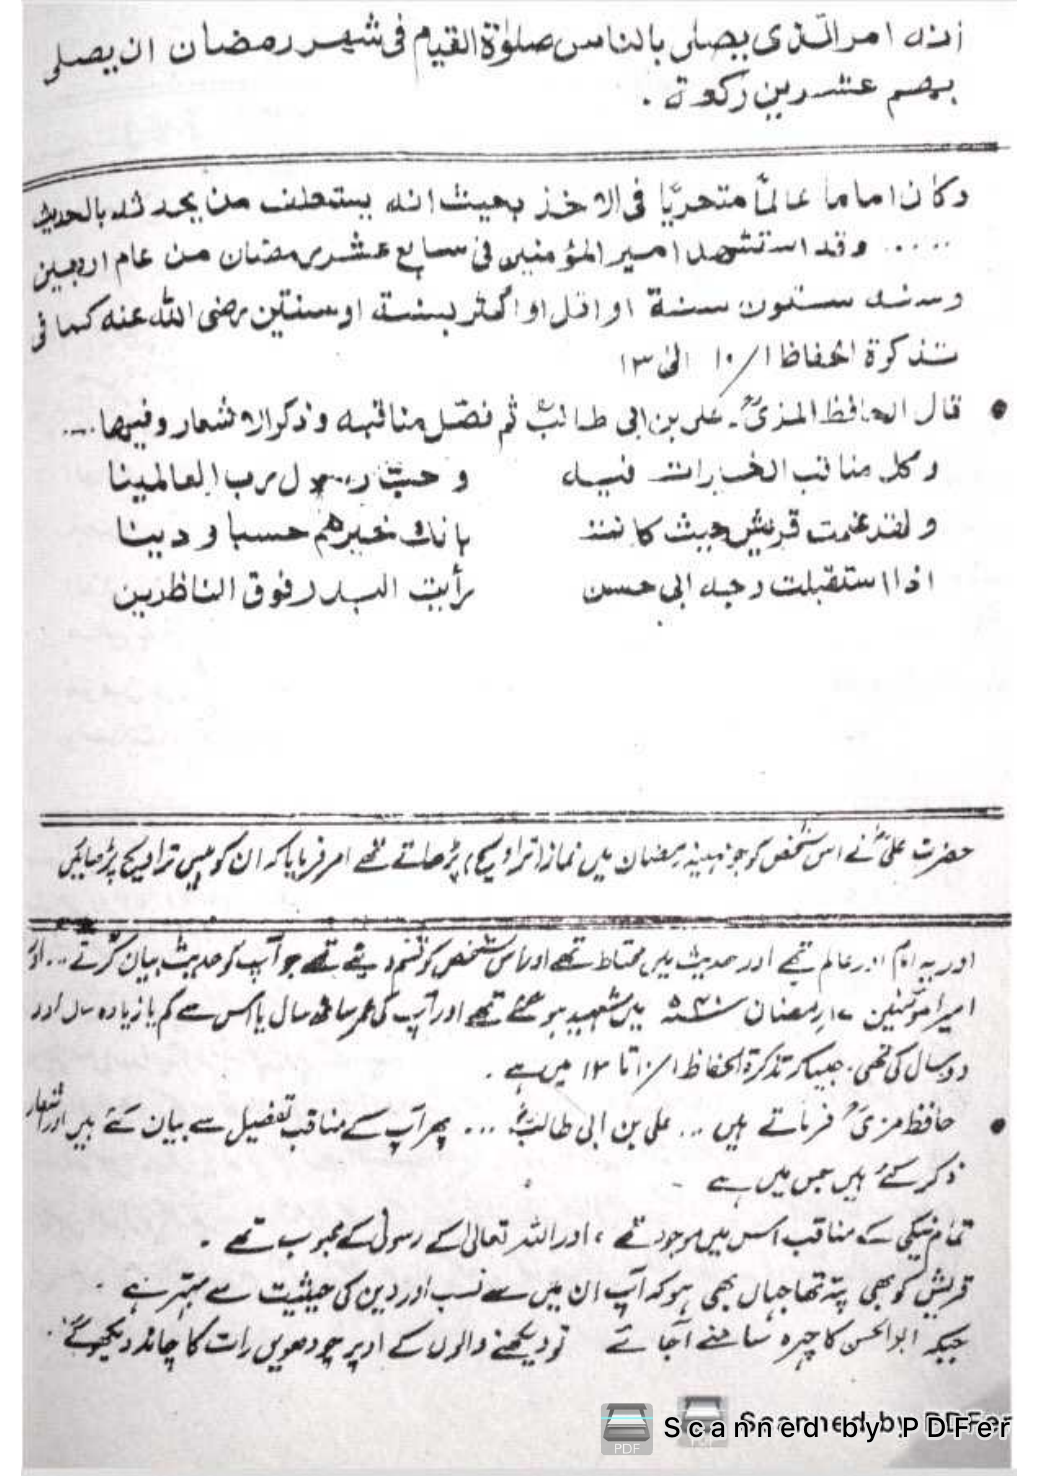 انه امر الذی یصلی بالناس صلوٰة القیام فی شهر رمضان ان یصلی
بهم عشرین رکوة .
وکان اماما عالمًا متحریًا فی الاخذ بحیث انه یستحلف من یحدثه بالحدیث
..... وقد استشهد امیر المؤمنین فی سابع عشر رمضان من عام اربعین
وسنه ستون سنة او اقل او اکثر بسنة او سنتین رضی الله عنه کما فی
تذکرة الحفاظ ۱/ ۱۰ الی ۱۳
• قال الحافظ المزیؒ۔ علی بن ابی طالبؓ ثم فصّل مناقبه وذکر الاشعار وفیها....
وکل مناقب الخیرات فیه وحبّ رسول رب العالمینا
ولقد علمت قریش حیث کانت بانك خیرهم حسبا و دینا
اذا استقبلت وجه ابی حسن رأیت البدر فوق الناظرین
حضرت علیؓ نے اس شخص کو جو مہینہ رمضان میں نماز (تراویح) پڑھاتے تھے امر فرمایا کہ ان کو بیس تراویح پڑھائیں
اور یہ امام اور عالم تھے اور حدیث میں محتاط تھے اور اس شخص کو قسم دیتے تھے جو آپ کو حدیث بیان کرتے ... اور
امیر المؤمنین ۱۷ رمضان ۴۰ھ میں شہید ہو گئے تھے اور آپ کی عمر ساٹھ سال یا اس سے کم یا زیادہ سال اور
دو سال کی تھی . جیسا کہ تذکرة الحفاظ ۱/۱۰ تا ۱۳ میں ہے .
• حافظ مزیؒ فرماتے ہیں ... علی بن ابی طالبؓ ... پھر آپ کے مناقب تفصیل سے بیان کئے ہیں اور اشعار
ذکر کئے ہیں جس میں ہے
تمام نیکی کے مناقب اس میں موجود تھے ، اور اللہ تعالیٰ کے رسول کے محبوب تھے .
قریش کو بھی پتہ تھا جہاں بھی ہو کہ آپ ان میں سے نسب اور دین کی حیثیت سے بہتر ہے .
جبکہ ابو الحسن کا چہرہ سامنے آجائے تو دیکھنے والوں کے اوپر چودھویں رات کا چاند دیکھو گے .
Scanned by PDFer